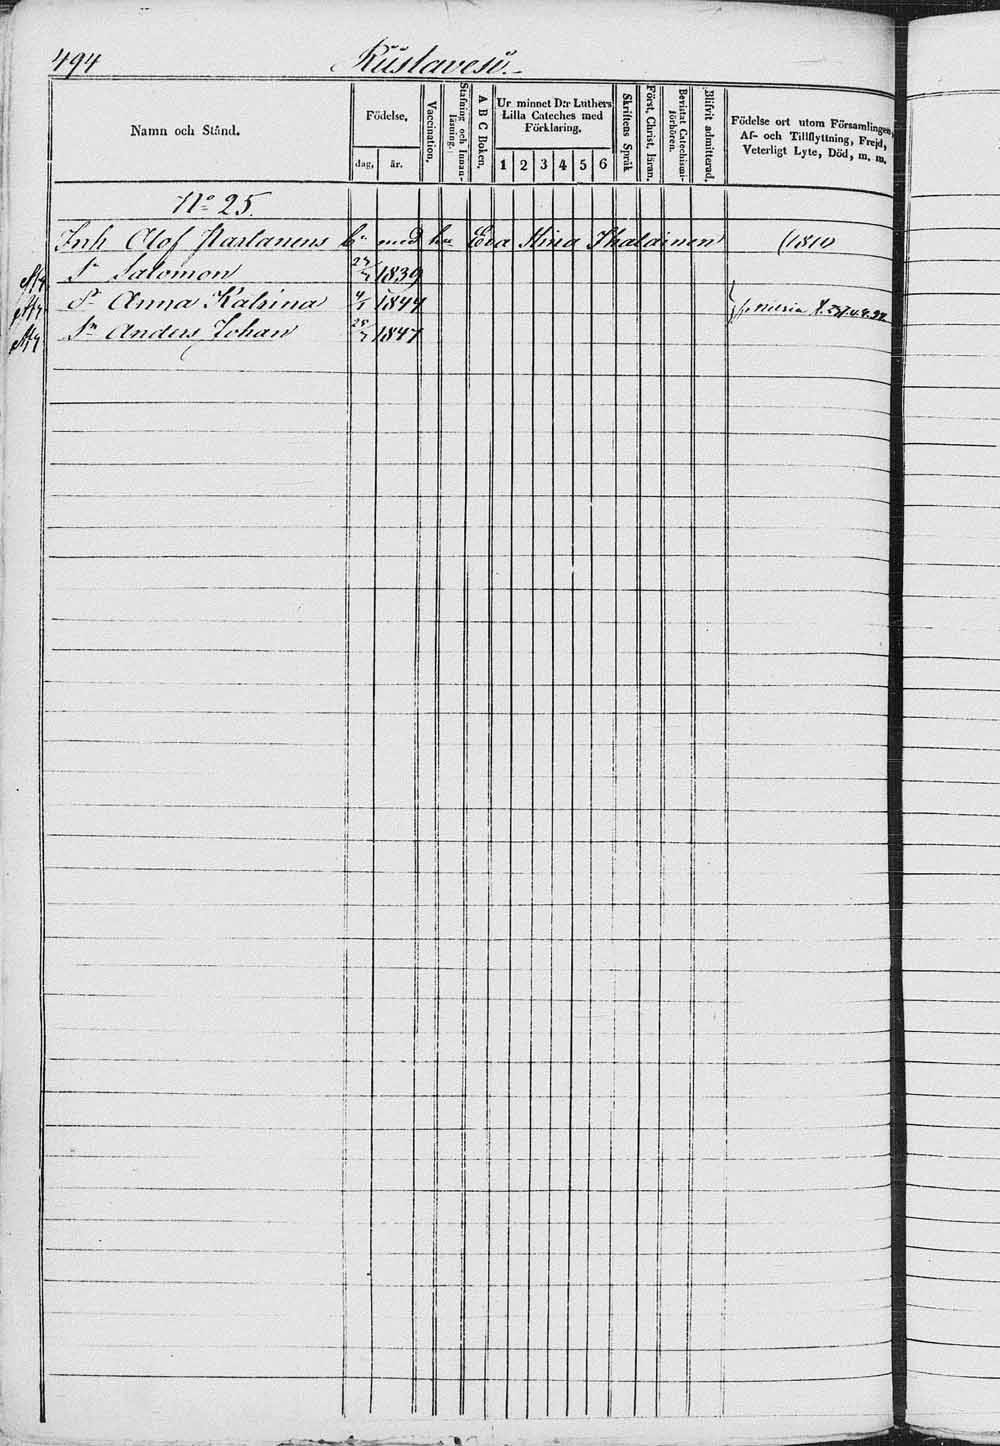 494 Rüstavesi.
Namn och Stånd.
Födelse,
dag, år.
Vaccination.
Stafning och Innanläsning.
A B C Boken.
Ur minnet D:r Luthers Lilla Cateches med Förklaring.
1 2 3 4 5 6
Skriftens Språk
Först. Christ. läran.
Bevistat Catechismi-förhören.
Blifvit admitterad.
Födelse ort utom Församlingen,
Af- och Tillflyttning, Frejd,
Veterligt Lyte, Död, m. m.
No 25.
Inh Olof Partanens bn med hu Eva Stina Ihalainen (1810
Sn Salomon 1839
Dr Anna Katrina 4/1 1844
Sn Anders Johan 1847